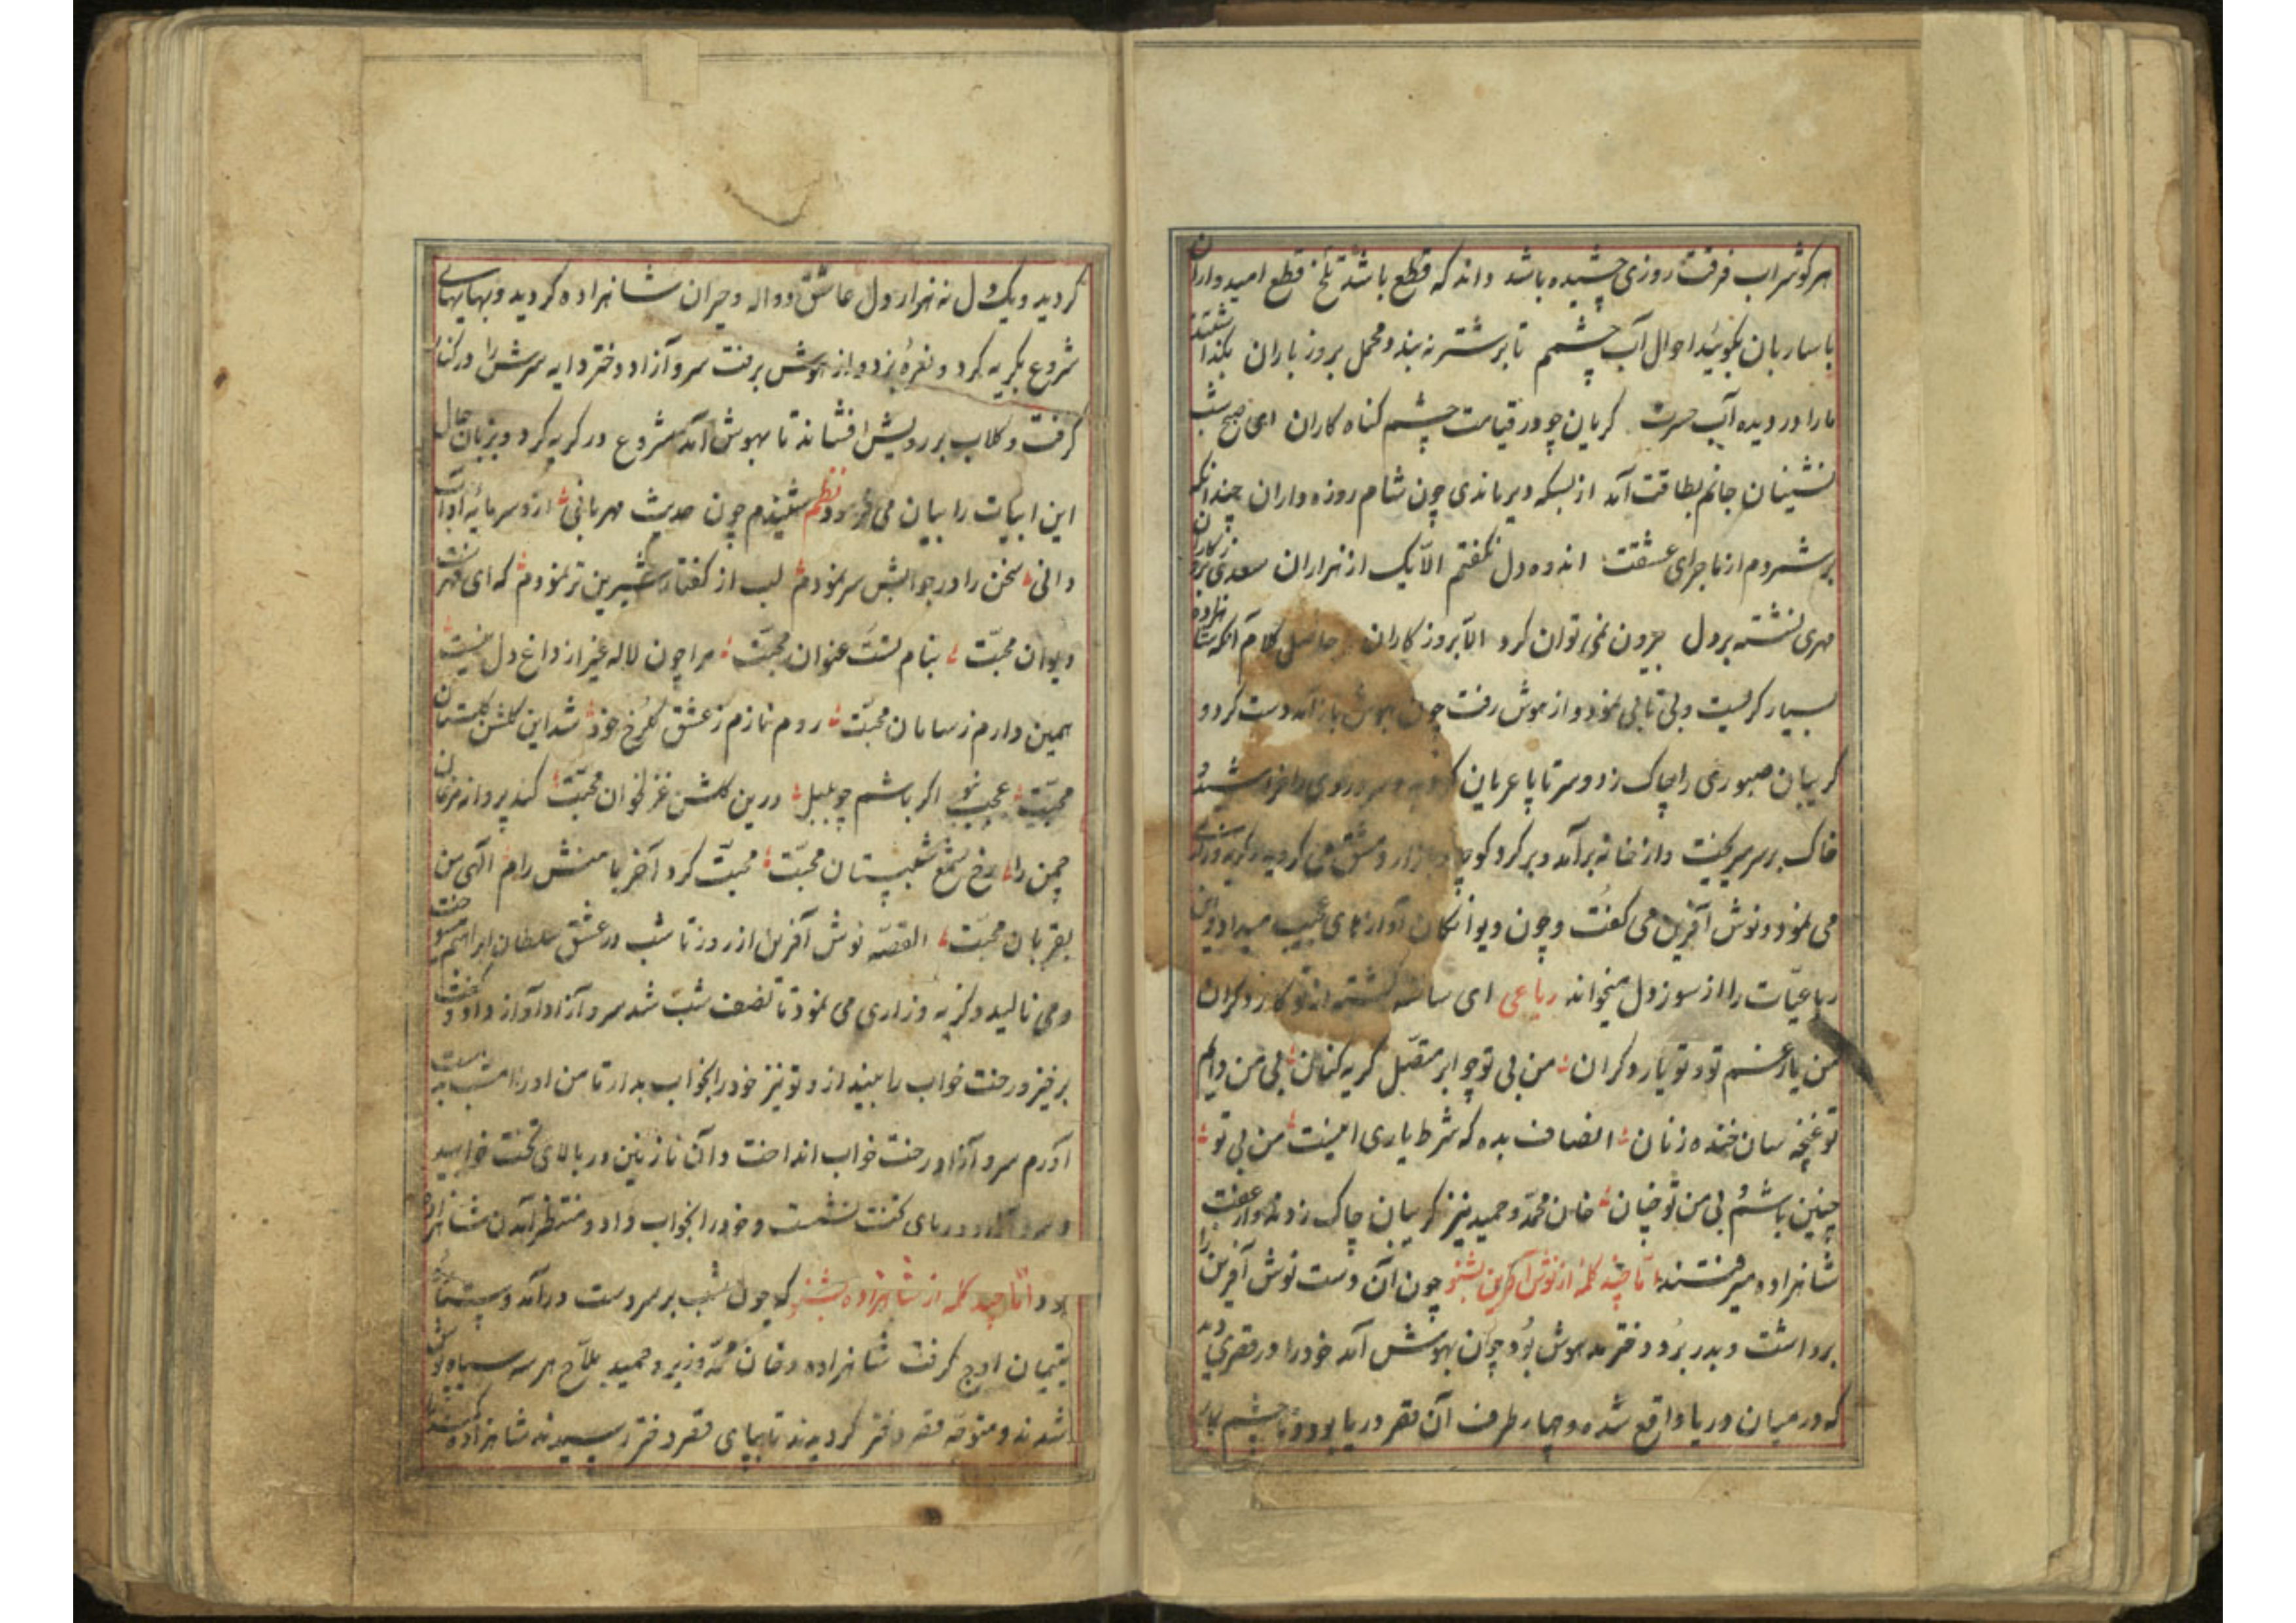 هر کو شراب فرقت روزی چشیده باشد داند که قطع باشد تلخ قطع امیدواران
با ساربان بکوئید احوال آب چشمم تا بر شتر نه بندد محمل بروز باران بکذاشتند
ما را در دیده آب حسرت کریان چو در قیامت چشم کناه کاران ای صبح شب
نشینان جانم بطاقت آمد از بسکه دیر ماندی چون شام روزه داران چندانکه
برشمردم از ماجرای عشقت اندوه دل نکفتم الا یک از هزاران سعدی بروزکاران
مهری نشسته بر دل بیرون نمی توان کرد الا بروزکاران حاصل کلام آنکه شاهزاده
بسیار کریست و بی تابی نمود و از هوش رفت چون بهوش باز آمد دست کرد و
کریبان صبوری را چاک زد و سر تا پا عریان سر و روی را خراشید و
خاک بر سر میریخت و از خانه برآمد و بر کرد کوچه و بازار دمشق می کردید
می نمود و نوش آفرین می کفت و چون دیوانکان آوازهای عجیب میداد و این
رباعیات را از سوز دل میخواند رباعی ای ساخته کشته از تو کار دکران
من یار غم تو و تو یار دکران من بی تو چو ابر متصل کریه کنان بی من دایم
تو غنچه سان خنده زنان انصاف بده که شرط یاری اینست من بی تو
چنین باشم و بی من تو چنان خان محمد و حمید نیز کریبان چاک زدند و از عقب
شاهزاده میرفتند اما چند کلمه از نوش آفرین بشنو چون آن دست نوش آفرین را
برداشت و بدر برد و دختر مدهوش بود چون بهوش آمد خود را در قصری دید
که در میان دریا واقع شده و چهار طرف آن قصر دریا بود و تا چشم کار
کردید و یک دل نه هزار دل عاشق و واله و حیران شاهزاده کردید و بهایهای
شروع بکریه کرد و نعره بزد و از هوش برفت سرو آزاد دختر دایه سرش را در کنار
کرفت و کلاب بر رویش افشاند تا بهوش آمد شروع در کریه کرد و بزبان حال
این ابیات را بیان می فرمود نظم شنیدم چون حدیث مهربانی ازو سرمایه آداب
دانی سخن را در جوابش سر نمودم لب از کفتار شیرین تر نمودم که ای فهرست
دیوان محبت بنام تست عنوان محبت مرا چون لاله غیر از داغ دل نیست
همین دارم ز سامان محبت روم نازم ز عشق کلرخ خود شد این کلشن کلستان
محبت عجب نبود اکر باشم چو بلبل درین کلشن غزلخوان محبت کند پروانه مرغان
چمن را رخ شمع شبستان محبت محبت کرد آخر با منش رام الهی من
بقربان محبت القصه نوش آفرین از روز تا شب در عشق سلطان ابراهیم میسوخت
و می نالید و کریه و زاری می نمود تا نصف شب شد سرو آزاد آواز داد و کفت
برخیز و رخت خواب را بینداز و تو نیز خود را بخواب بدار تا من او را امشب بدست
آورم سرو آزاد رخت خواب انداخت و آن نازنین در بالای تخت خوابید
و سرو آزاد در پای تخت نشست و خود را بخواب داد و منتظر آمدن شاهزاده
بود اما چند کلمه از شاهزاده بشنو که چون شب بر سر دست درآمد و ستاره
یتیمان اوج کرفت شاهزاده و خان محمد وزیر و حمید ملاح هر سه سیاه پوش
شدند و متوجه قصر دختر کردیدند تا بپای قصر دختر رسیدند شاهزاده کمند